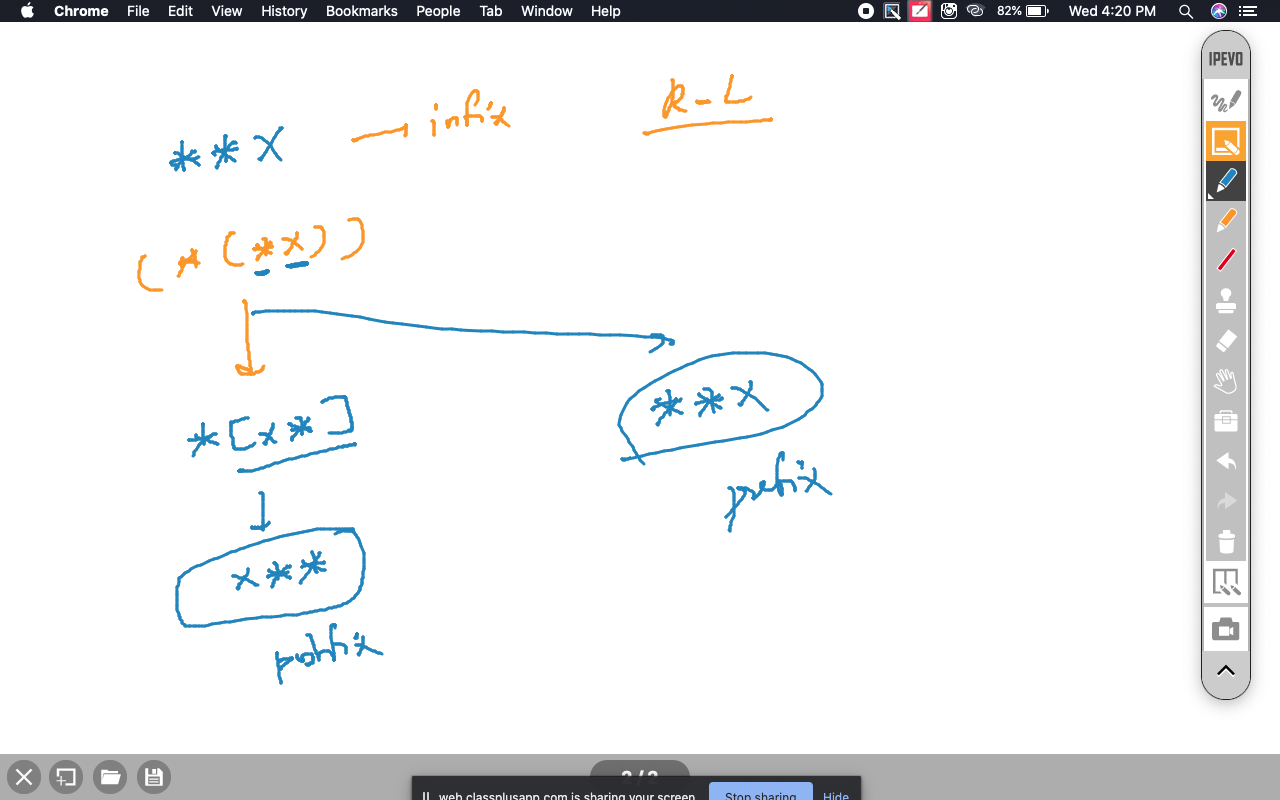 Chrome File Edit View History Bookmarks People Tab Window Help 82% Wed 4:20 PM
IPEVO
R-L
— infix
**X
(*(*x))
*[x*]
**X
prefix
x**
postfix
2/2
web.classplusapp.com is sharing your screen. Stop sharing Hide